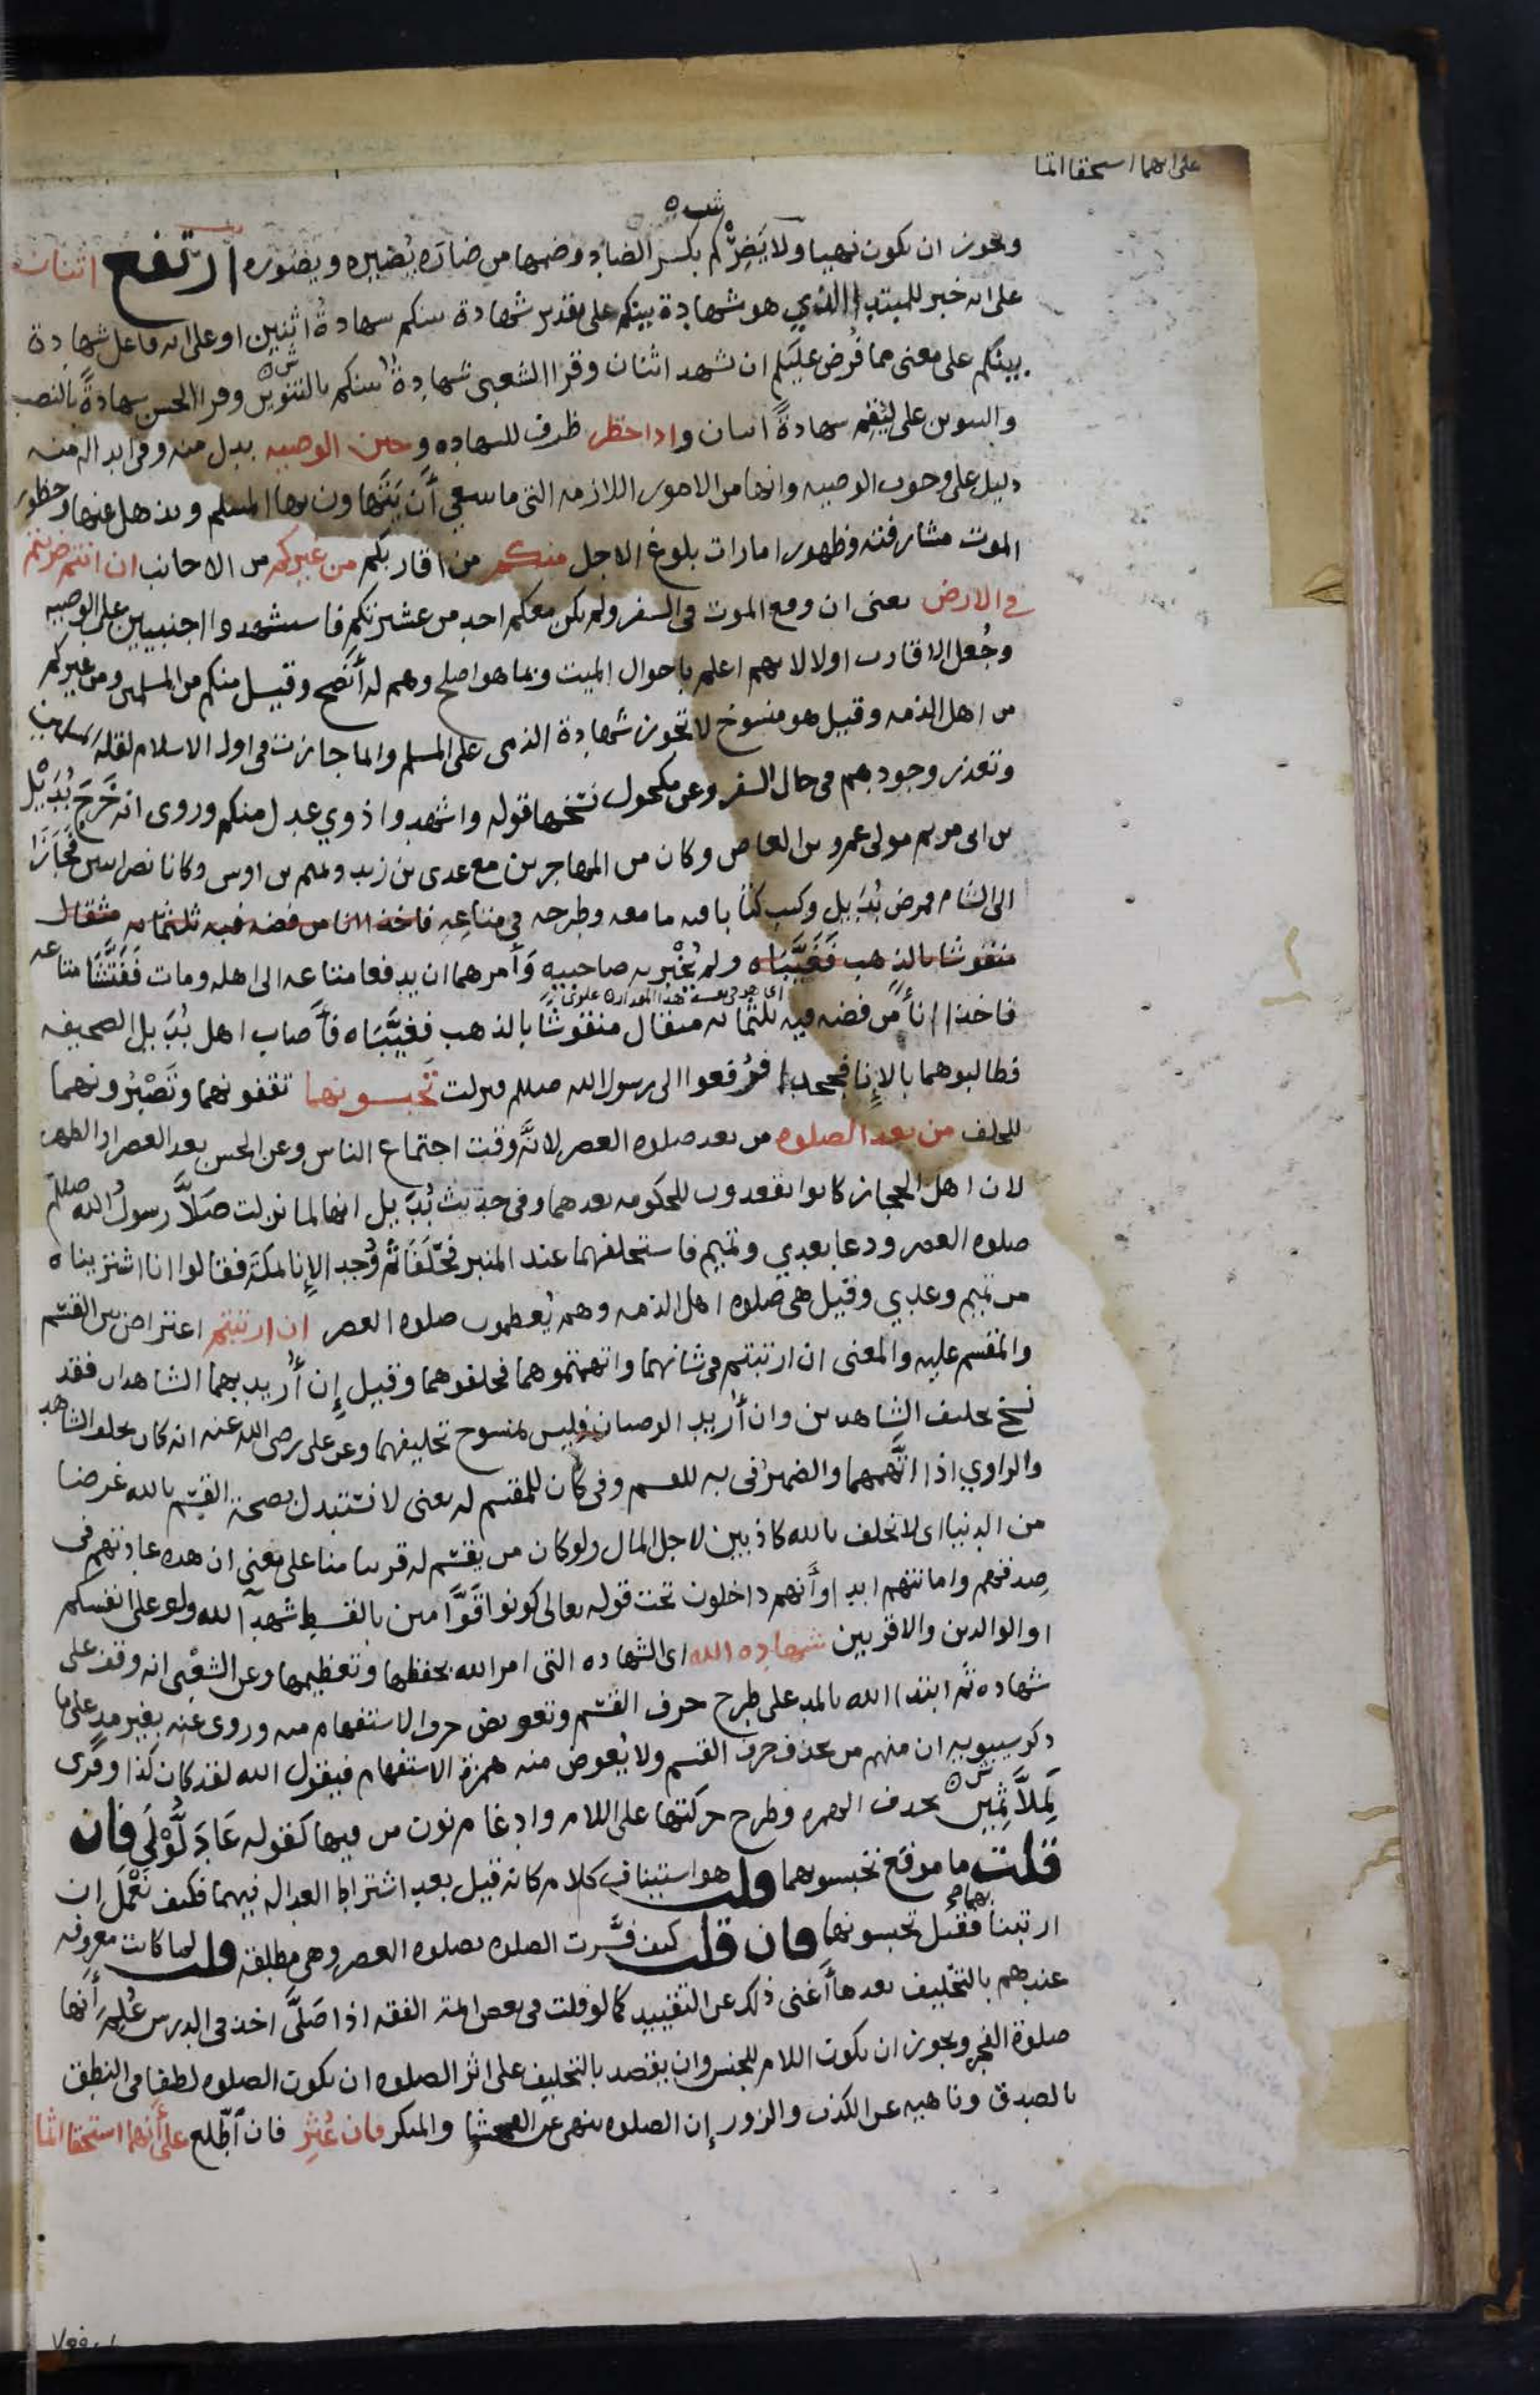 على انهما استحقا اثما
ش ه
ويجوز ان يكون نهيا ولا يَضِرْكُم بكسر الضاد وضمها من ضاره يُضيره ويضوره ارتفع اثنان
على انه خبر للمبتدا الذي هو شهادة بينكم على تقدير شهادة بينكم شهادةُ اثنين او على انه فاعل شهادة
بينكم على معنى مما فُرض عليكم ان تشهد اثنان وقرا الشعبى شهادةٌ بينكم بالتنوين وقرا الحسن شهادةً بالنصب
والتنوين على ليُقِم شهادةً اثنان واذا حضر ظرف للشهاده وحين الوصيه بدل منه وفى ابداله منه
دليل على وجوب الوصيه وانها من الامور اللازمه التى ما ينبغى أن يَتَهاون بها المسلم ويذهل عنها وحظور
الموت مشارفته وظهور امارات بلوغ الاجل منكم من اقاربكم من غيركم من الاجانب ان انتم ضربتم
في الارض يعنى ان وقع الموت فى السفر ولم يكن معكم احد من عشيرتكم فاستشهدوا اجنبيين على الوصيه
وجُعل الاقارب اولا لانهم اعلم باحوال الميت وبما هو اصلح وهم له أنصح وقيل منكم من المسلمين ومن غيركم
من اهل الذمه وقيل هو منسوخ لا تجوز شهادة الذمى على المسلم وانما جازت فى اول الاسلام لقلة المسلمين
وتعذر وجودهم فى حال السفر وعن مكحول نسخها قوله واشهدوا ذوي عدل منكم وروى انه خَرَجَ بُدَيْل
بن ابى مريم مولى عمرو بن العاص وكان من المهاجرين مع عدى بن زيد وتميم بن اوس وكانا نصرانيين تُجّارًا
الى الشام فمرض بُدَيل وكتب كتابا فيه ما معه وطرحه في متاعِهِ فاخذا انا من فضه فيه ثلثمائه مثقال
منقوشا بالذهب فَغَيَّبَاه ولم يُخْبِر به صاحبيه وَأمرهما ان يدفعا متاعه الى اهله ومات فَفَتَّشَا متاعه
فاخذا إناءً من فضه فيه ثلثمائه مثقال منقوشًا بالذهب فغيَّبَاه فأصاب اهل بُدَيل الصحيفه
فطالبوهما بالإنا فجحدا فرُفعوا الى رسول الله صلعم فنزلت تَحبسونهما تقفونهما وتَصْبُرونهما
للحلف من بعد الصلوه من بعد صلوه العصر لانَّه وقت اجتماع الناس وعن الحسن بعد العصر او الظهر
لان اهل الحجاز كانوا يقعدون للحكومه بعدهما وفى حديث بُدَيل انها لما نزلت صَلَّا رسولُ الله صلعم
صلوه العصر ودعا بعدي وتميم فاستحلفهما عند المنبر فحَلَفَا ثم وُجد الإنا بمكة فقالوا انا اشتريناه
من تميم وعدي وقيل هى صلوه اهل الذمه وهم يُعظمون صلوه العصر ان ارتبتم اعتراض بين القسَم
والمقسم عليه والمعنى ان ارتبتم فى شانهما واتهمتموهما فحلفوهما وقيل إن أُريد بهما الشاهدان فقد
نسخ تحليف الشاهدين وان أُريد الوصيان فليس بمنسوخ تحليفهما وعن على رضى الله عنه انه كان يحلف الشاهد
والراوي اذا اتَّهمهما والضميرُ فى به للقسم وفى كان للمقسم له يعنى لا نستبدل بصحة القسم بالله غرضا
من الدنيا اى لا نحلف بالله كاذبين لاجل المال ولو كان من يقسم له قريبا منا على معنى ان هذه عادتهم فى
صدقهم وامانتهم ابدا وأنهم داخلون تحت قوله تعالى كونوا قَوَّامين بالقسط شهدآ لله ولو على انفسكم
او الوالدين والاقربين شهاده الله اى الشهاده التى امر الله بحفظها وتعظيمها وعن الشعْبى انه وقف على
شهاده ثم ابتدا الله بالمد على طرح حرف القسَم وتعويض حرف الاستفهام منه وروى عنه بغير مد على ما
ذكر سيبويه ان منهم من يحذف حرف القسم ولا يُعوض منه همزة الاستفهام فيقول الله لقد كان كذا وقُرى
لَمِلآَثِمين بحذف الهمزه وطرح حركتها على اللام وادغام نون من فيها كقوله عَادَ لُّوْلَى فان
قلت ما موقع تحبسونهما قلت هو استيناف كلام كانه قيل بعد اشتراط العداله فيهما فكيف نَعْمَل ان
ارتبنا بهما فقيل تحبسونهما فان قلت كيف فسَّرت الصلوه بصلوه العصر وهى مطلقه قلت لما كانت معروفه
عندهم بالتحليف بعدها أغنى ذلك عن التقييد كما لو قلت فى بعض ائمة الفقه اذا صَلَّى اخذ فى الدرس عُلِمَ أنها
صلوة الفجر ويجوز ان يكون اللام للجنس وان يقصد بالتحليف على اثر الصلوه ان يكون الصلوه لطفًا فى النطق
بالصدق وناهيه عن الكذب والزور إن الصلوه تنهى عن الفحشا والمنكر فان عُثِر فان اطّلع على أنهما استحقا اثما